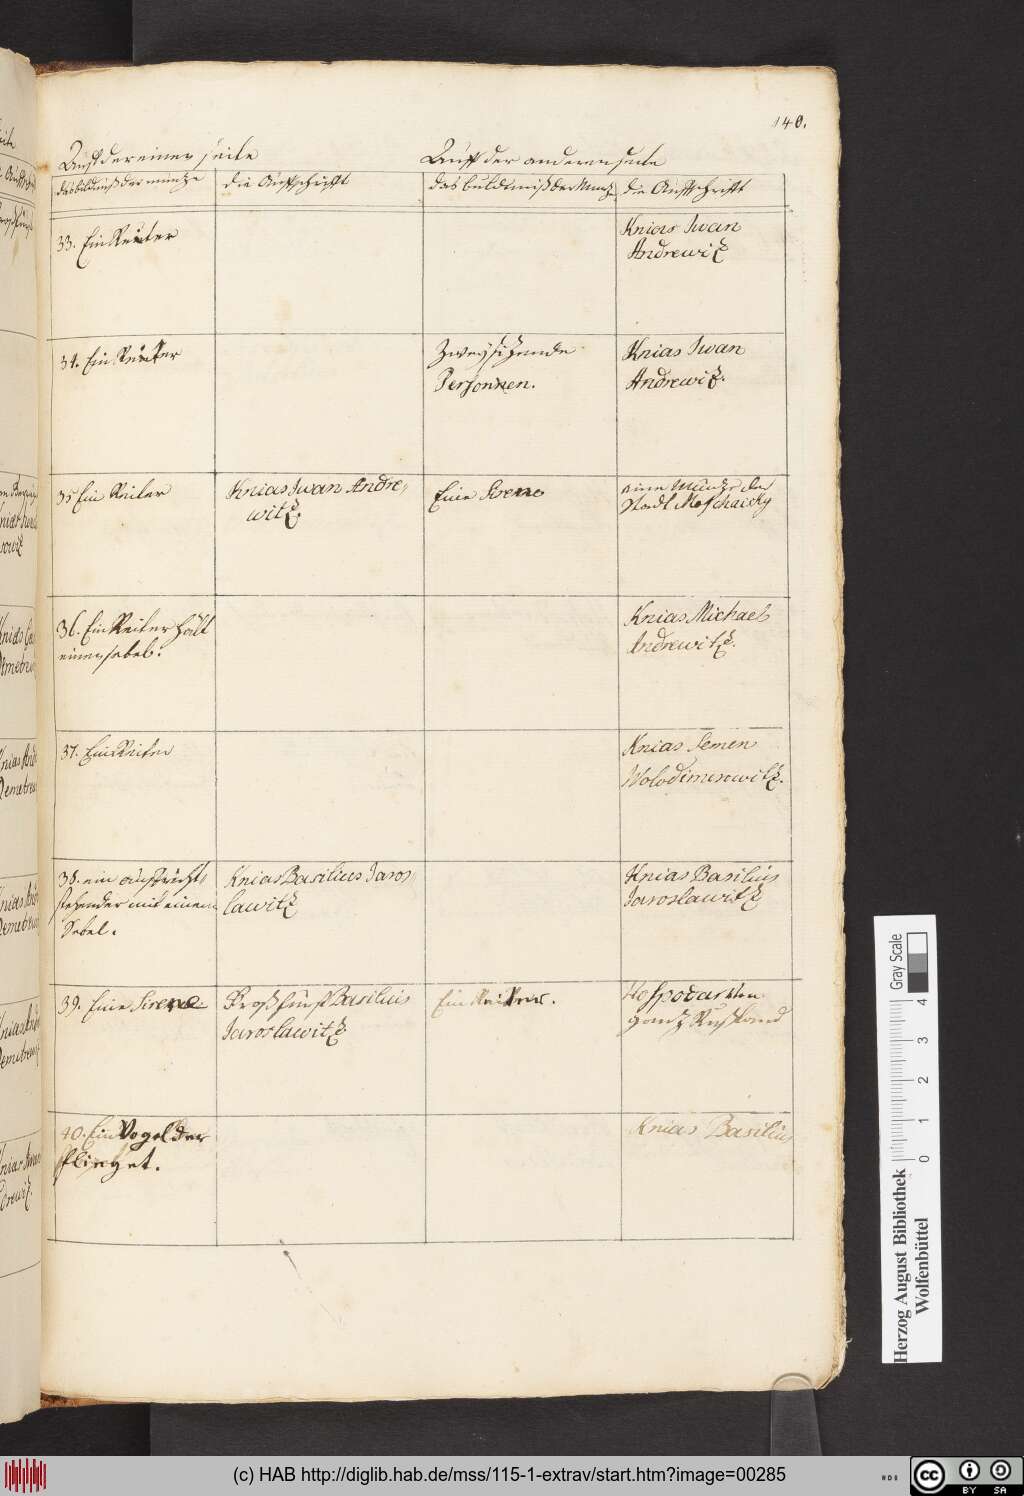 140.
Auff der einen seite
Auff der anderen seite
das bildnuß der muntze
die Auffschrifft
das buldtniß der Muntz
die Auffschrifft
33. Ein Reuter
Knias Iwan
Andrewitz
34. Ein Reuter
Zwey sitzende
Personnen.
Knias Iwan
Andrewitz.
35 Ein Reiter
Knias Iwan Andre,
witz.
Eine Sirene
eine Müntze der
Stadt Moschaisky
36. Ein Reiter hält
einen sebel.
Knias Michael
Andrewitz.
37. Ein Reiter
Knias Semen
Wolodimerowitz.
38. ein auffricht,
stehender mit einem
Sebel.
Knias Basilius Jaros,
lawitz
Knias Basilius
Jaroslawitz
39. Eine Sirene
Großfürst Basilius
Jaroslawitz
Ein Reiter.
Hospodar von
gantz Rußland
40. Ein Vogel der
flieget.
Knias Basilius
Herzog August Bibliothek
Wolfenbüttel
Gray Scale
0 1 2 3 4
(c) HAB http://diglib.hab.de/mss/115-1-extrav/start.htm?image=00285
cc BY SA